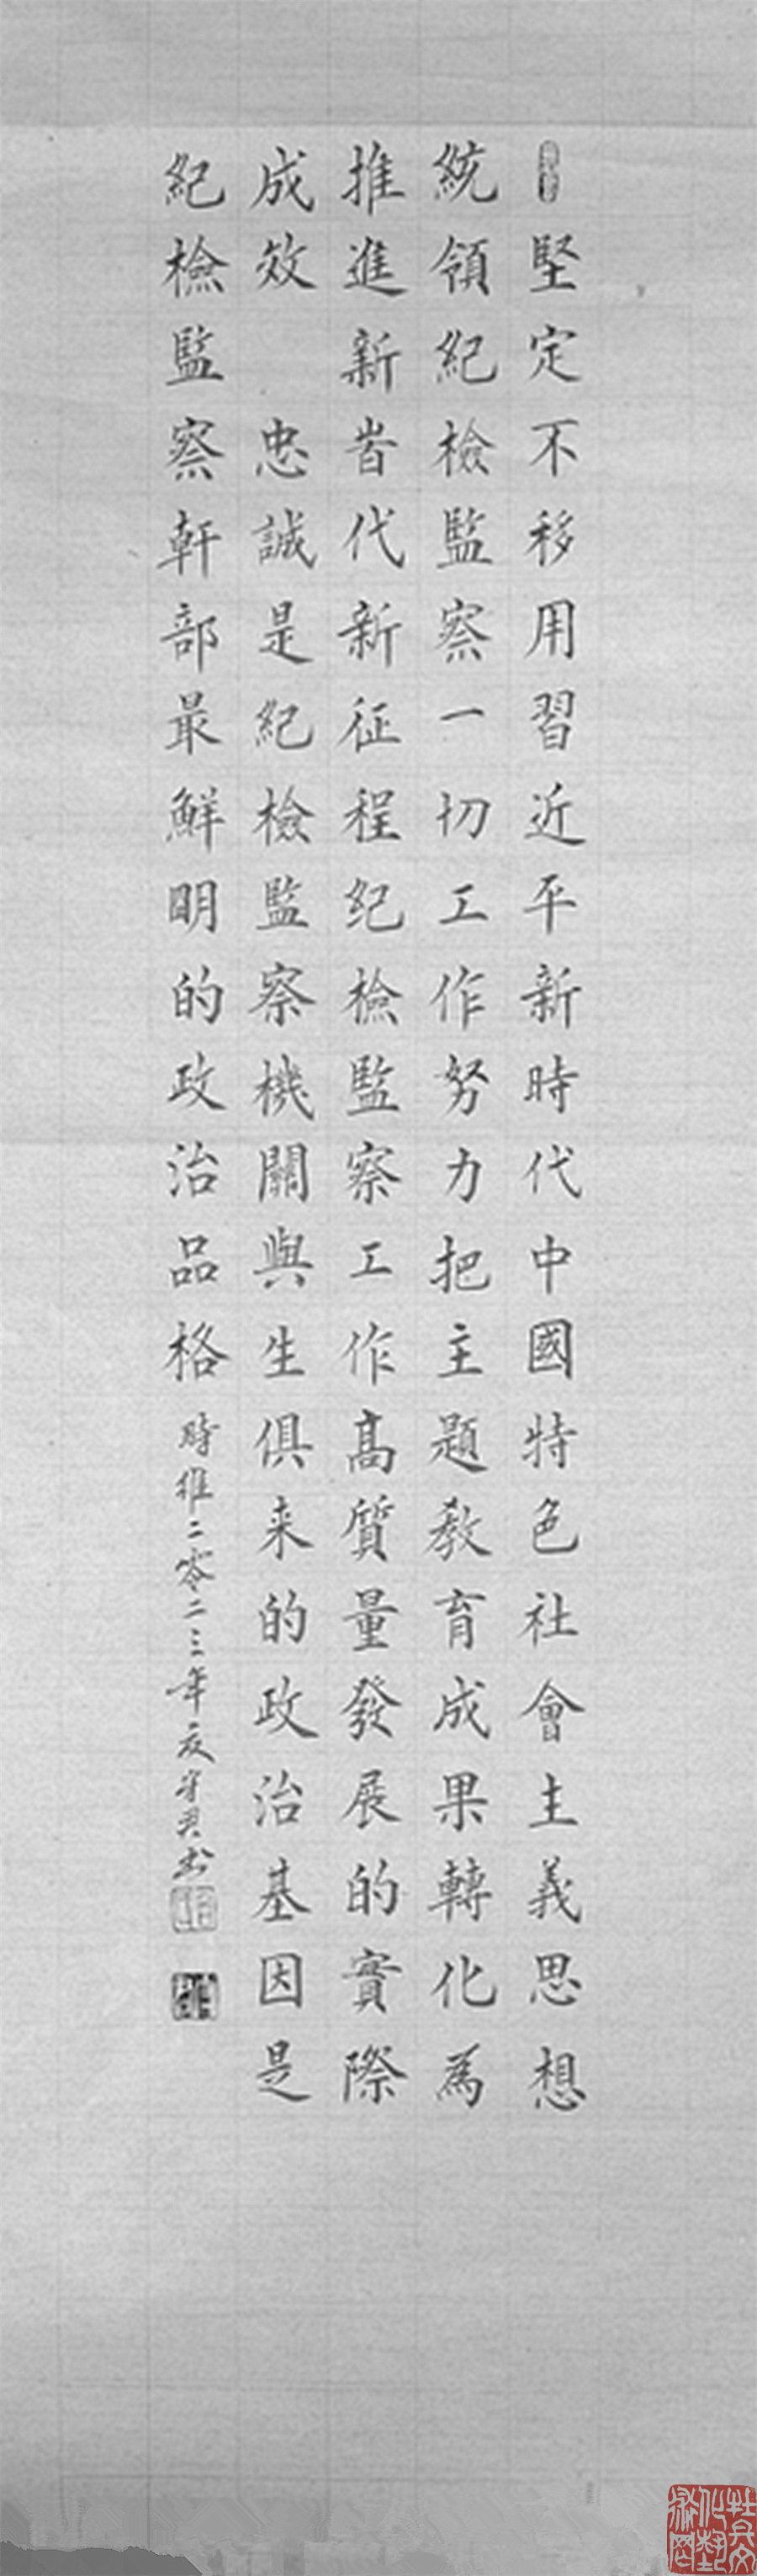 堅定不移用習近平新時代中國特色社會主義思想
統領紀檢監察一切工作努力把主題教育成果轉化為
推進新旹代新征程纪檢監察工作高質量發展的實際
成效 忠誠是紀檢監察機關與生俱来的政治基因是
紀檢監察軒部最鮮明的政治品格
時維二零二三年